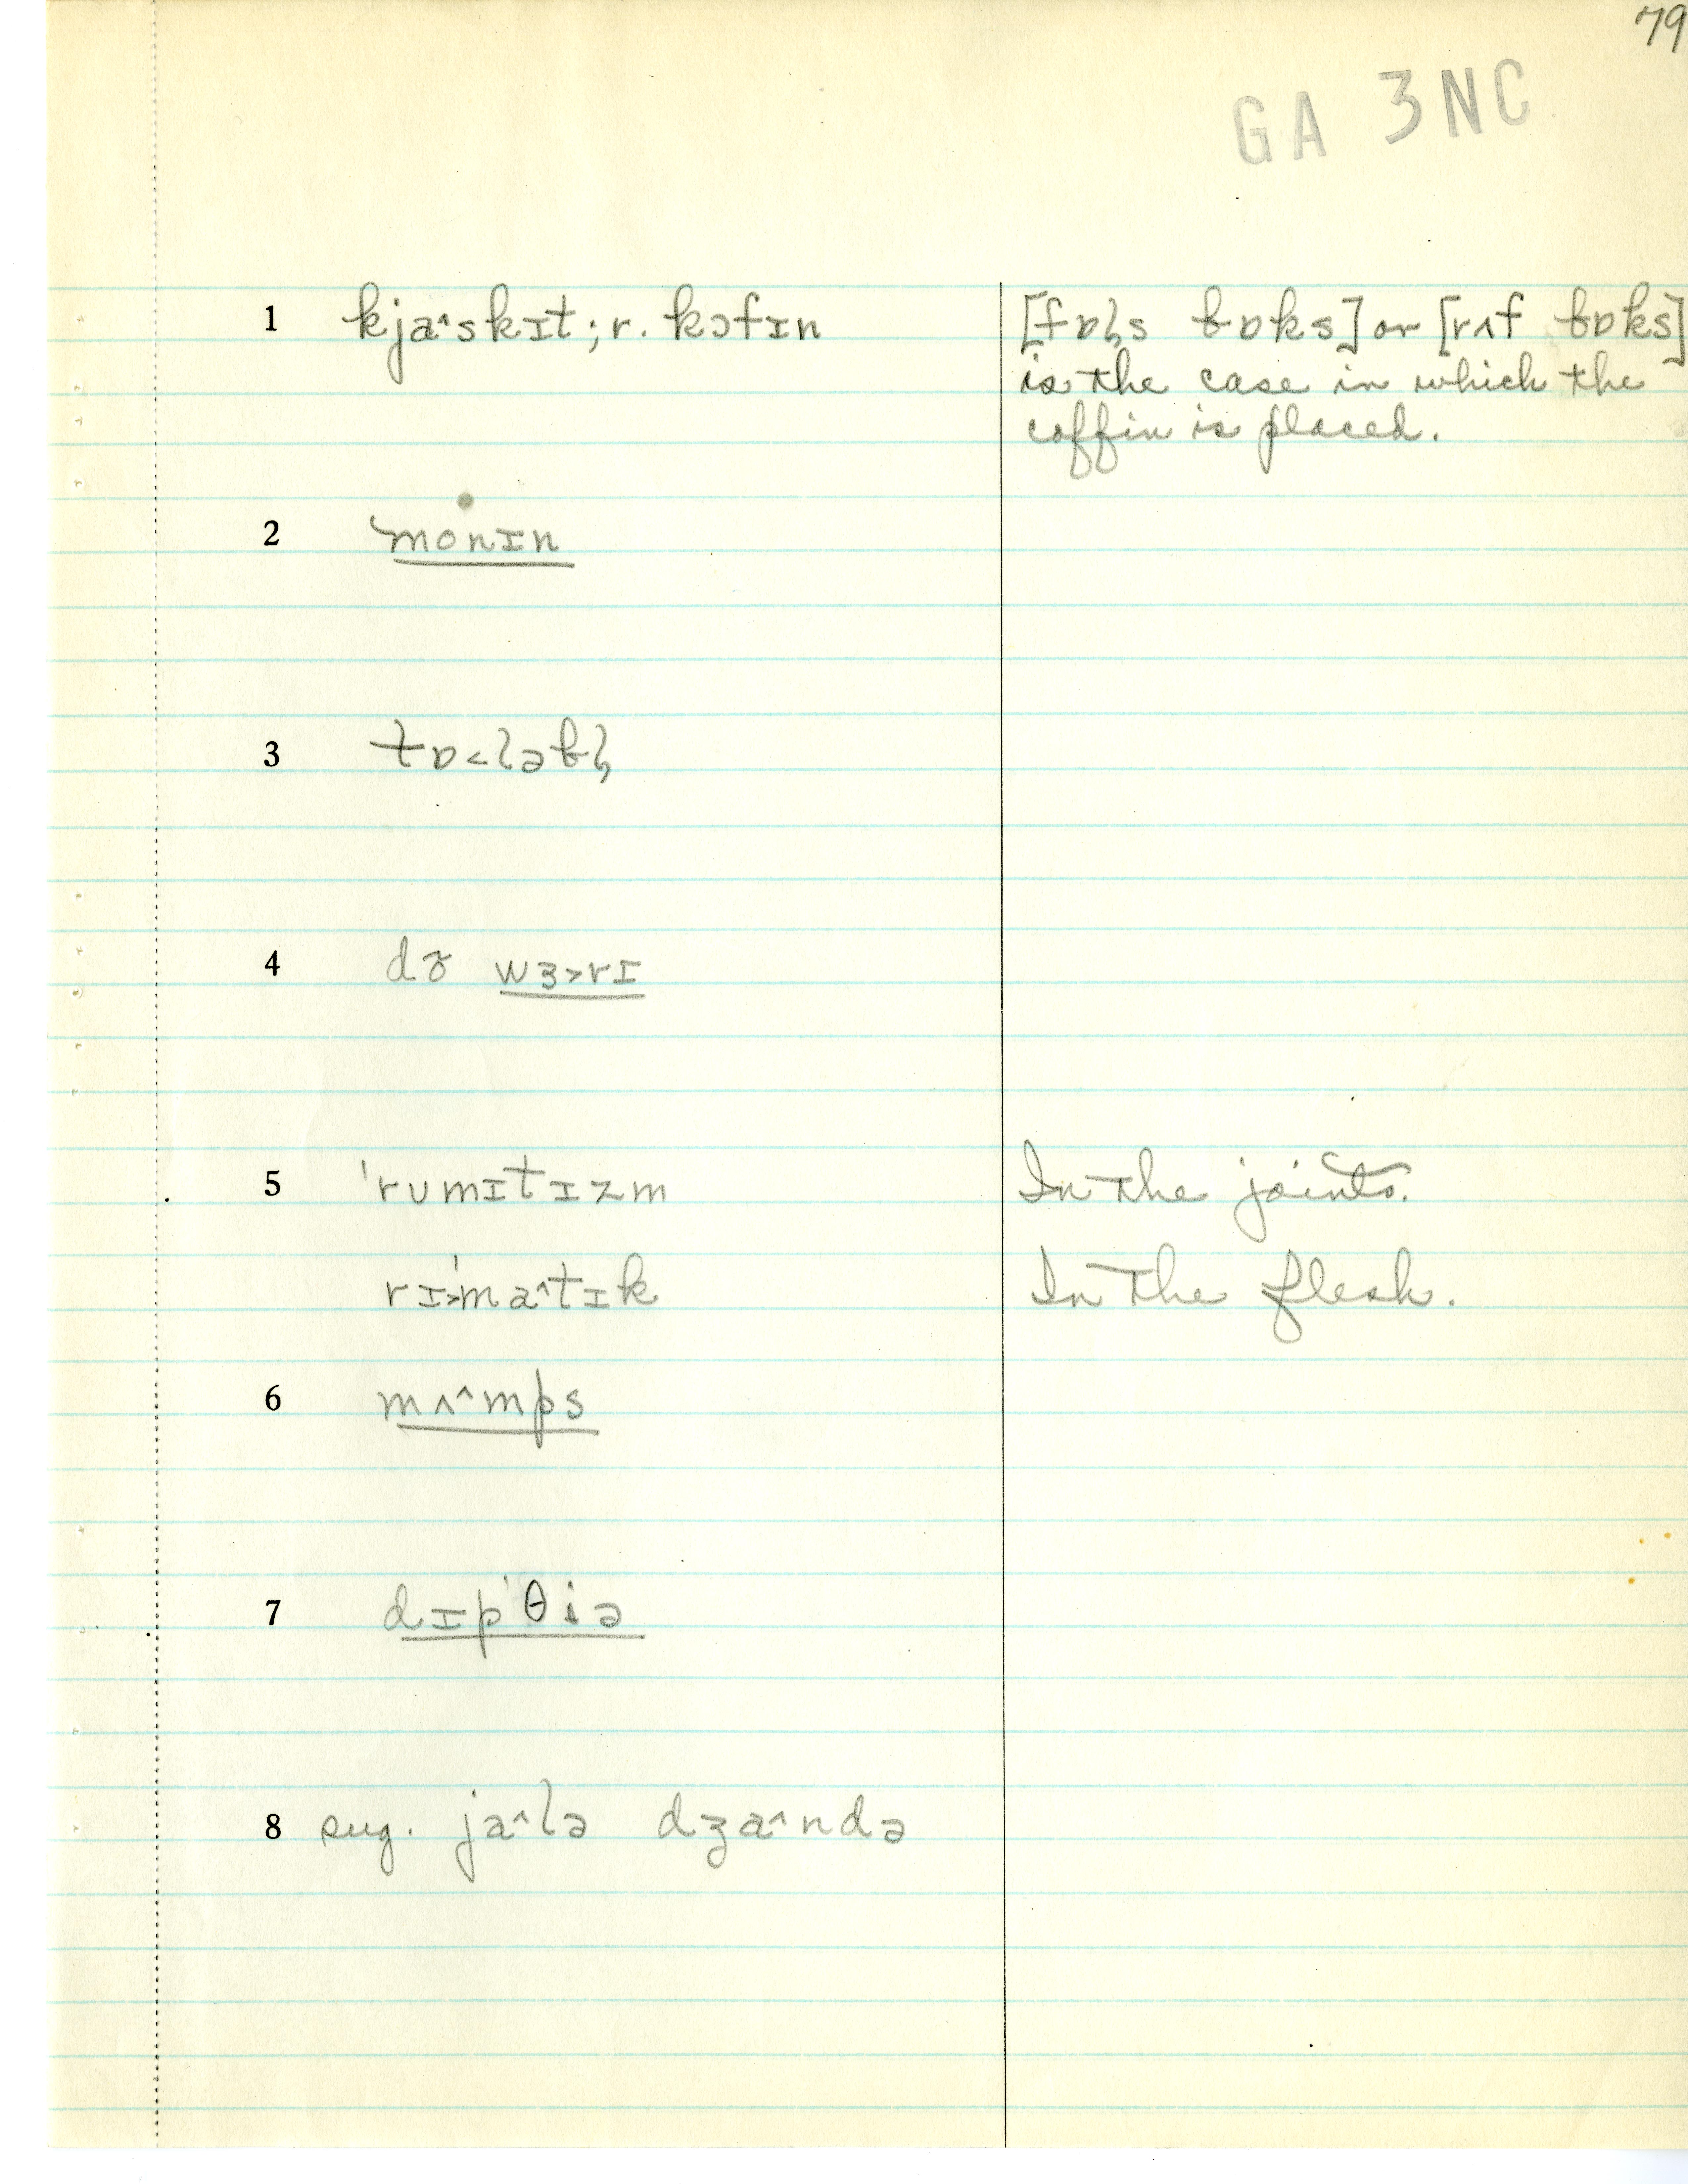 79
GA 3NC
1 kja^skɪt; r. kɔfɪn [fɒl̩s bɒks] or [rʌf bɒks]
is the case in which the
coffin is placed.
2 monɪn
3 tɒ<ləbl̩
4 dɚ wɜ>rɪ
5 'rumɪtɪzm In the joints.
rɪ>'ma^tɪk In the flesh.
6 mʌ^mps
7 dɪp'θiə
8 sug. ja^lə dʒa^ndə